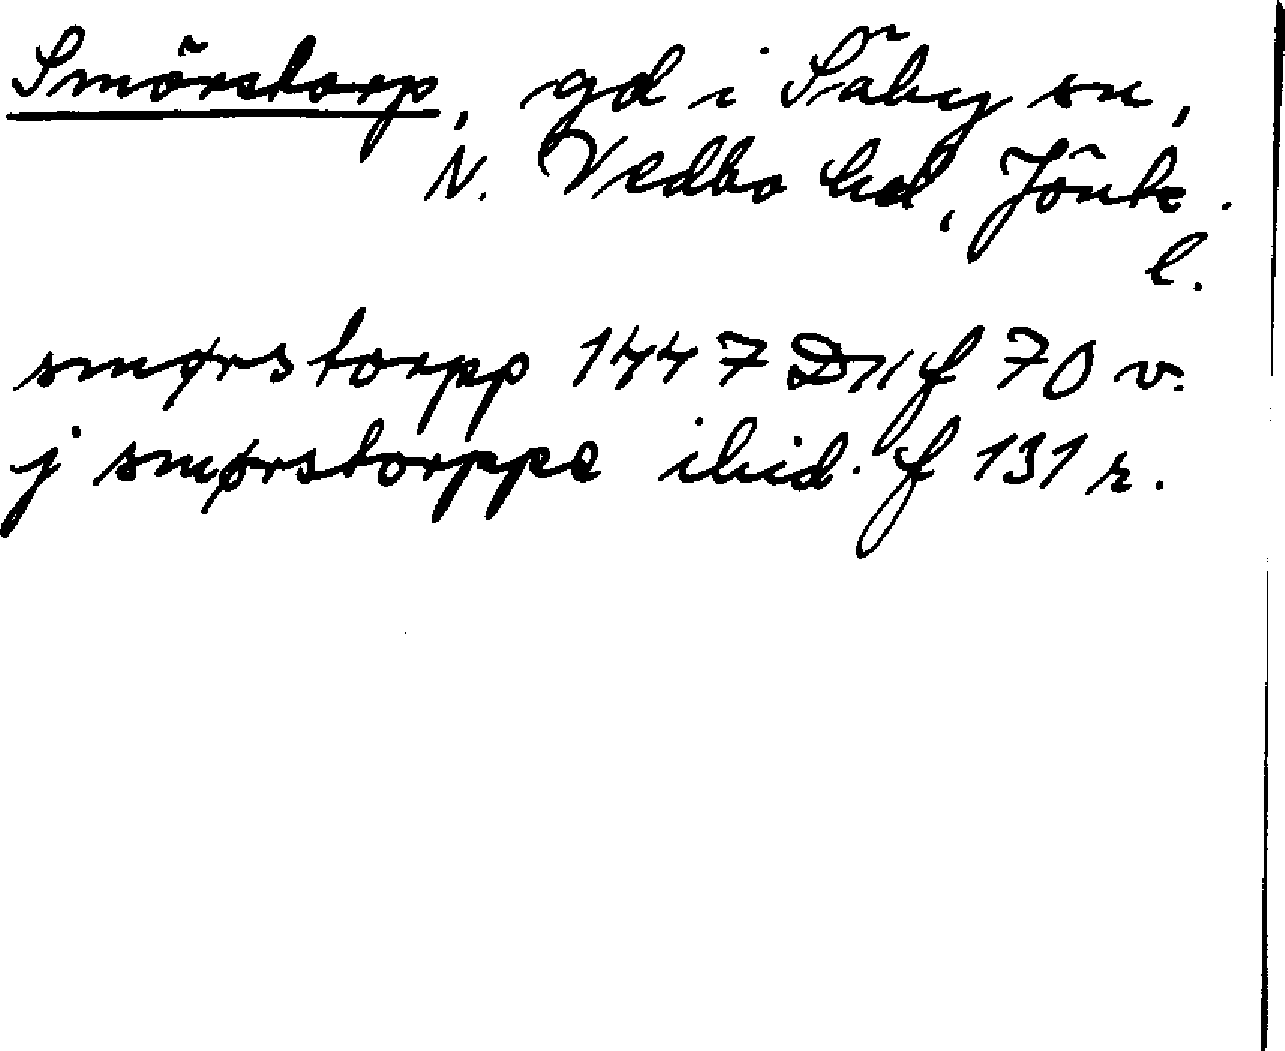 Smörstorp, gd i Säby sn,
N. Vedbo hd, Jönk.
l.
smørstorpp 1447 D11 f 70 v.
j smørstorppe ibid. f 131 r.